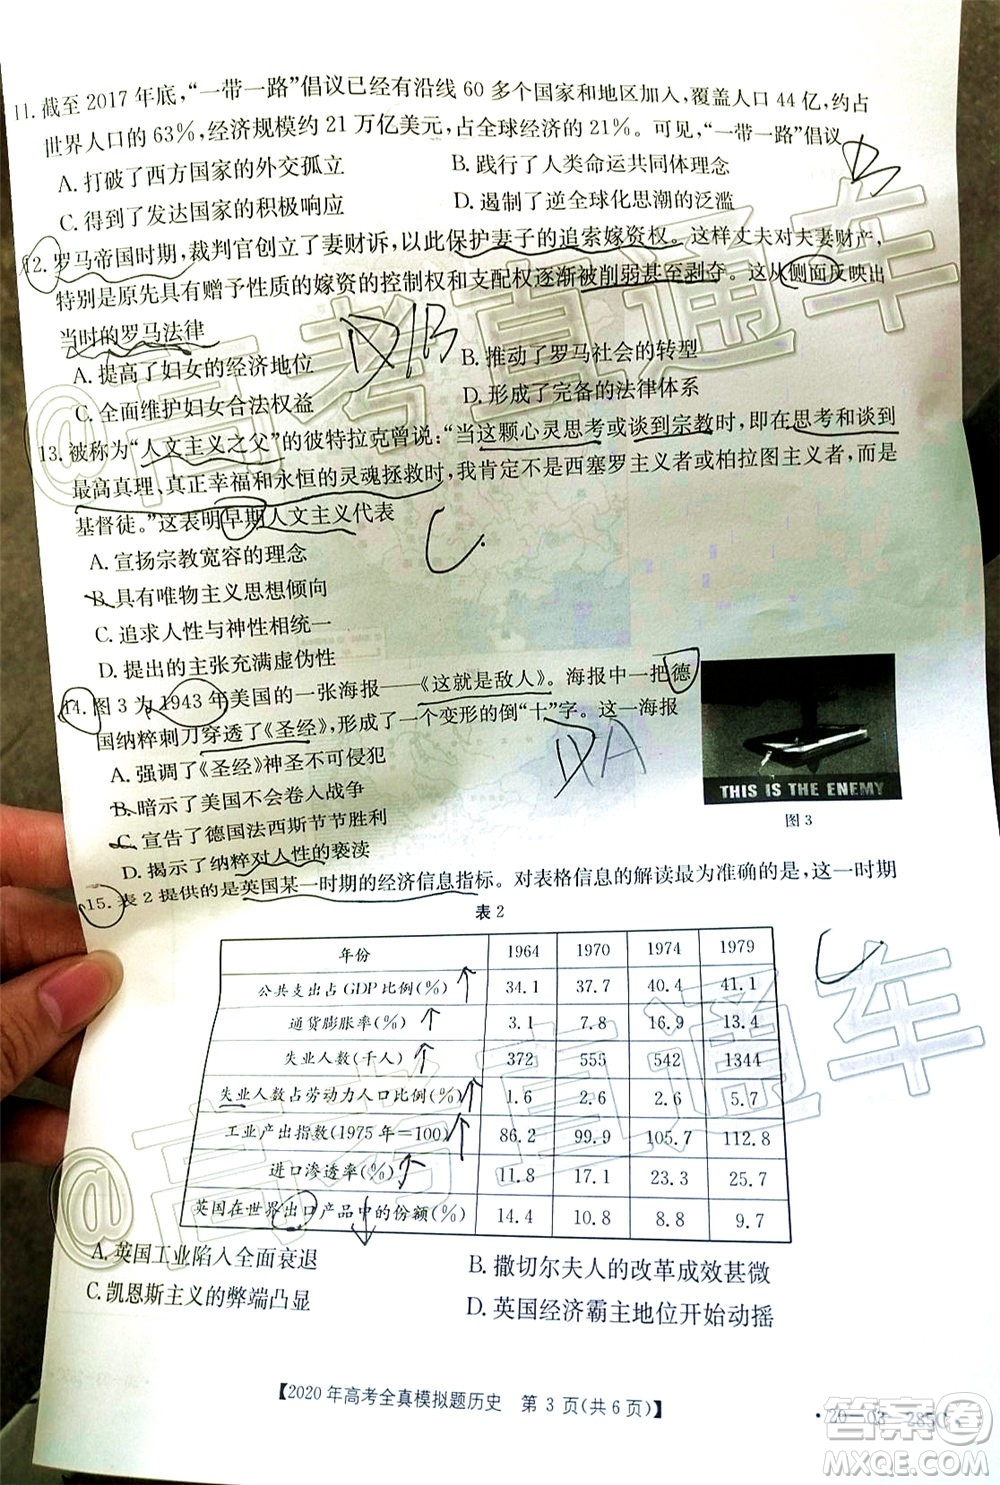 11. 截至 2017 年底，“一带一路”倡议已经有沿线 60 多个国家和地区加入，覆盖人口 44 亿，约占
世界人口的 63%，经济规模约 21 万亿美元，占全球经济的 21%。可见，“一带一路”倡议
A. 打破了西方国家的外交孤立
B. 践行了人类命运共同体理念
C. 得到了发达国家的积极响应
D. 遏制了逆全球化思潮的泛滥
B
12. 罗马帝国时期，裁判官创立了妻财诉，以此保护妻子的追索嫁资权。这样丈夫对夫妻财产，
特别是原先具有赠予性质的嫁资的控制权和支配权逐渐被削弱甚至剥夺。这从侧面反映出
当时的罗马法律
D/B
A. 提高了妇女的经济地位
B. 推动了罗马社会的转型
C. 全面维护妇女合法权益
D. 形成了完备的法律体系
13. 被称为“人文主义之父”的彼特拉克曾说：“当这颗心灵思考或谈到宗教时，即在思考和谈到
最高真理、真正幸福和永恒的灵魂拯救时，我肯定不是西塞罗主义者或柏拉图主义者，而是
基督徒。”这表明早期人文主义代表
C.
A. 宣扬宗教宽容的理念
B. 具有唯物主义思想倾向
C. 追求人性与神性相统一
D. 提出的主张充满虚伪性
14. 图 3 为 1943 年美国的一张海报——《这就是敌人》。海报中一把德
国纳粹刺刀穿透了《圣经》，形成了一个变形的倒“十”字。这一海报
DA
A. 强调了《圣经》神圣不可侵犯
B. 暗示了美国不会卷入战争
C. 宣告了德国法西斯节节胜利
D. 揭示了纳粹对人性的亵渎
THIS IS THE ENEMY
图 3
15. 表 2 提供的是英国某一时期的经济信息指标。对表格信息的解读最为准确的是，这一时期
表 2
C
年份 1964 1970 1974 1979
公共支出占 GDP 比例(%) 34.1 37.7 40.4 41.1
通货膨胀率(%) 3.1 7.8 16.9 13.4
失业人数(千人) 372 555 542 1344
失业人数占劳动力人口比例(%) 1.6 2.6 2.6 5.7
工业产出指数(1975 年=100) 86.2 99.9 105.7 112.8
进口渗透率(%) 11.8 17.1 25.3 26.9
英国在世界出口产品中的份额(%) 14.4 10.8 8.8 9.7
A. 英国工业陷入全面衰退
B. 撒切尔夫人的改革成效甚微
C. 凯恩斯主义的弊端凸显
D. 英国经济霸主地位开始动摇
【2020 年高考全真模拟题历史 第 3 页(共 6 页)】
·20-03-285C·
@高考直通车
@高考直通车
答案卷
MXQE.COM